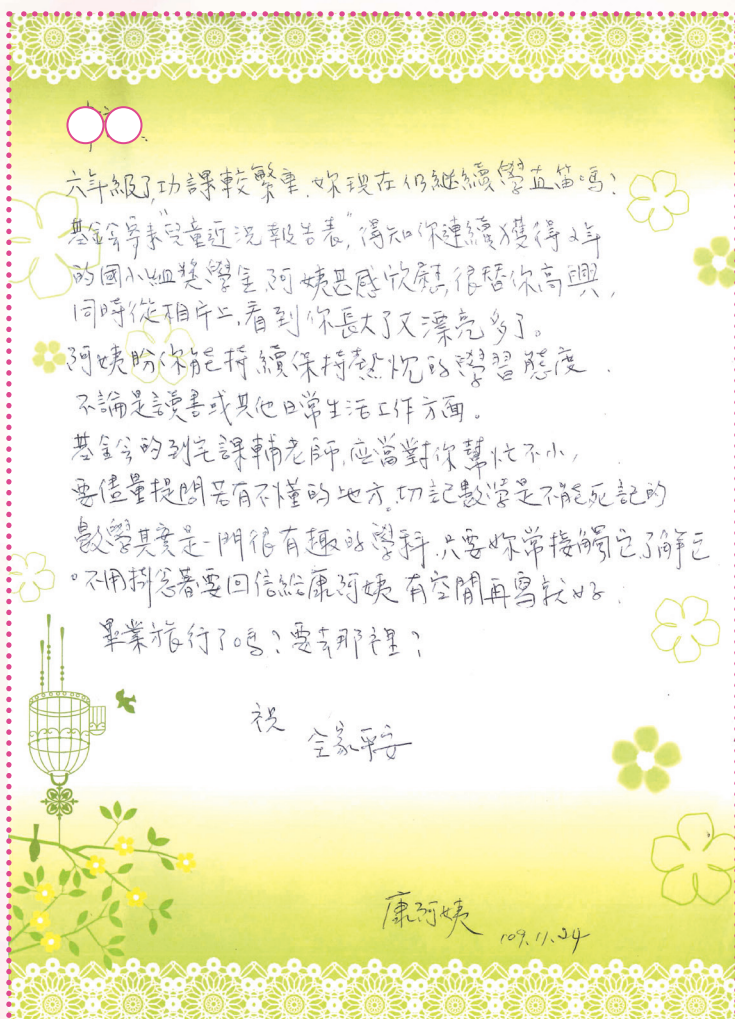 六年級了,功課較繁重,妳現在仍繼續學直笛嗎?
基金會寄來"兒童近況報告表",得知你連續獲得2年
的國小組獎學金,阿姨甚感欣慰,很替你高興,
同時從相片上,看到你長大了又漂亮多了。
阿姨盼你能持續保持熱忱的學習態度.
不論是讀書或其他日常生活工作方面。
基金會的到宅課輔老師,應當對你幫忙不小,
要儘量提問若有不懂的地方,切記數學是不能死記的
數學其實是一門很有趣的學科,只要妳常接觸它了解它
。不用掛念著要回信給康阿姨,有空閒再寫就好.
畢業旅行了嗎?要去那裡?
祝
全家平安
康阿姨
109.11.24